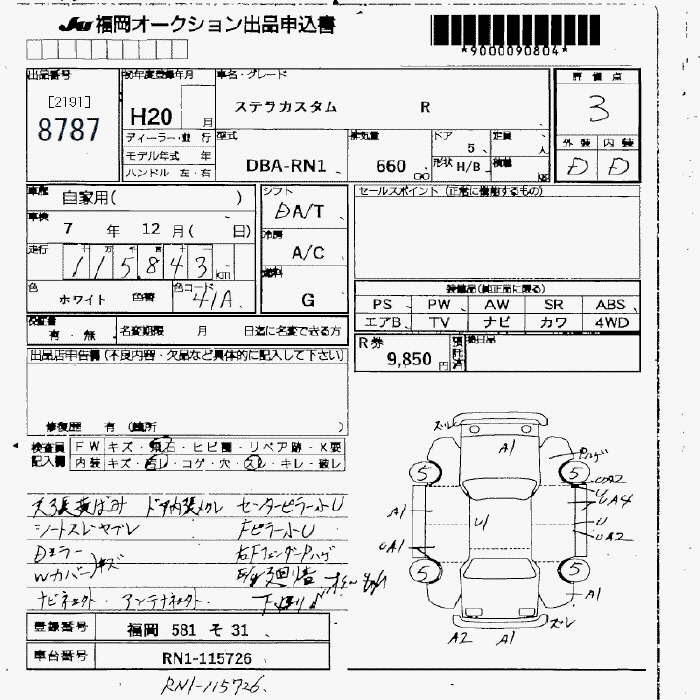 JU 福岡オークション出品申込書
*9000090804*
出品番号
[2191]
8787
初年度登録年月
H20 月
ディーラー・並 行
モデル年式 年
ハンドル 左・右
車名・グレード
ステラカスタム R
型式
DBA-RN1
排気量
660 cc
ドア
5
形状 H/B
定員
人
積載
kg
評価点
3
外装 内装
D D
車歴 自家用( )
車検 7 年 12 月( 日)
走行 十 万 千 百 十
115,843 km
色 ホワイト 色替
色コード 41A
シフト
DA/T
冷房
A/C
燃料
G
セールスポイント (正常に機能するもの)
装備品(純正品に限る)
PS PW AW SR ABS
エアB TV ナビ カワ 4WD
保証書 有・無
名変期限 月 日迄に名変できる方
R券 9,850 円
預託済
後日品
出品店申告欄(不良内容・欠品など具体的に記入して下さい)
修復歴 有 (箇所 )
検査員記入欄
FW キズ・飛石・ヒビ・リペア跡・X要
内装 キズ・汚レ・コゲ・穴・スレ・キレ・破レ
天張 ドア内張 センターピラー小U
シートスレヤブレ Fピラー小U
Dミラー 右FフェンダーPハゲ
Wカバー キズ
ナビネェクト・アンテナネェクト 下
ズレ
A1
Pハゲ
5
5
A1
U
UA1
UA2
U
UA4
U
UA2
5
5
A1
A2
A1
ズレ
登録番号 福岡 581 そ 31
車台番号 RN1-115726
RN1-115726.